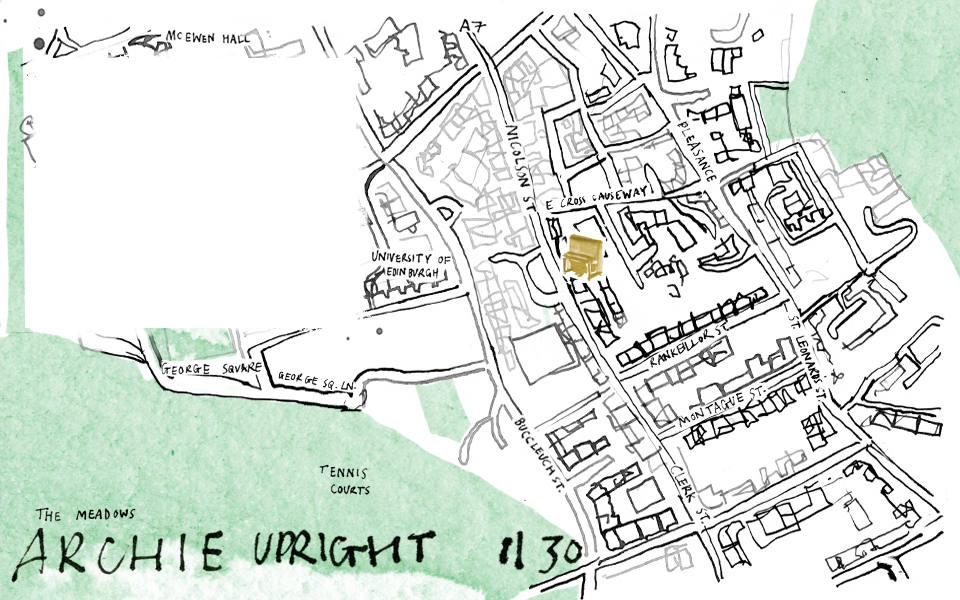 MCEWEN HALL
A7
NICOLSON ST
PLEASANCE
E CROSS CAUSEWAY
UNIVERSITY OF
EDINBURGH
RANKEILLOR ST.
ST. LEONARDS ST.
GEORGE SQUARE
GEORGE SQ. LN.
MONTAGUE ST.
BUCCLEUCH ST.
CLERK ST.
TENNIS
COURTS
THE MEADOWS
ARCHIE UPRIGHT